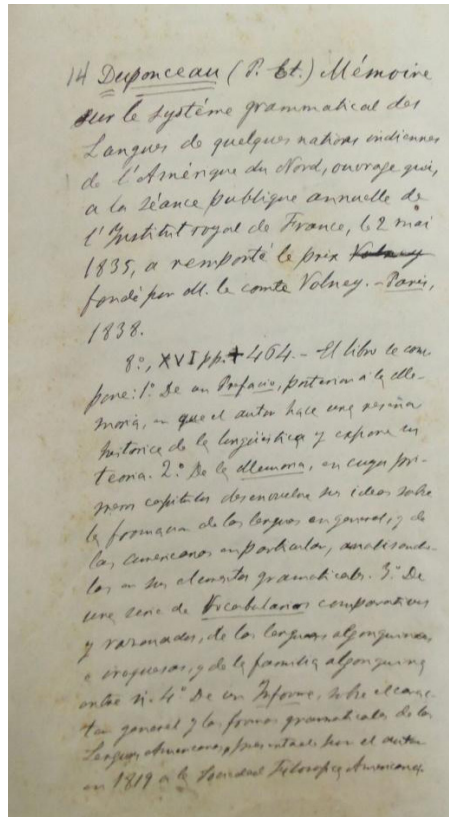 14 Duponceau (P. Et.) Mémoire
sur le système grammatical des
Langues de quelques nations indiennes
de l'Amérique du Nord, ouvrage qui,
a la séance publique annuelle de
l'Institut royal de France, le 2 mai
1835, a remporté le prix Volney
fondé par M. le comte Volney. - Paris,
1838.
8º, XVI pp. + 464. - El libro se com-
pone: 1º De un Prefacio, posterior á la Me-
moria, en que el autor hace una reseña
historica de la lingüística y expone su
teoria. 2º De la Memoria, en cuyos pri-
meros capítulos desenvuelve sus ideas sobre
la formacion de las lenguas en general, y de
las americanas en particular, analizando-
las en sus elementos gramaticales. 3º De
una serie de Vocabularios comparativos
y razonados, de las lenguas algonquinas
e iroquesas, y de la familia algonquina
entre si. 4º De un Informe, sobre el carac-
ter general y las formas gramaticales de las
Lenguas Americanas, presentado por el autor
en 1819 a la Sociedad Filosofica Americana.